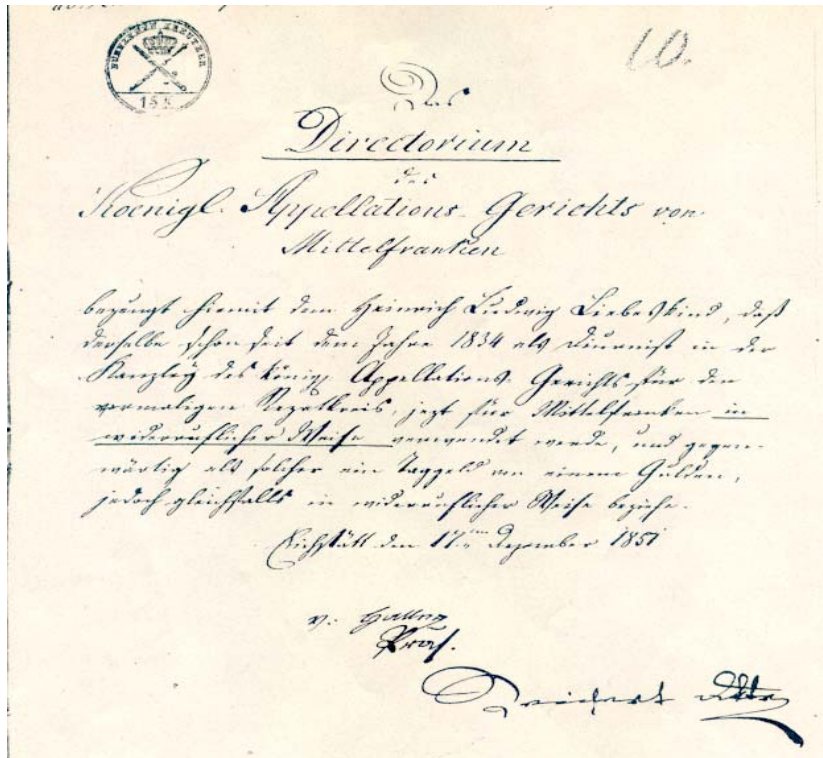 10.
FÜNFZEHN KREUTZER
15 K
Das
Directorium
des
Koenigl. Appellations-Gerichts von
Mittelfranken
bezeugt hiemit dem Heinrich Ludwig Liebeskind, daß
derselbe schon seit dem Jahre 1834 als Diurnist in der
Kanzley des königl. Appellations-Gerichts für den
vormaligen Rezatkreis, jezt für Mittelfranken in
widerruflicher Weise verwendet werde, und gegen-
wärtig als solcher ein Taggeld von einem Gulden,
jedoch gleichfalls in widerruflicher Weise beziehe.
Eichstätt den 17. Dezember 1851
v.
Präs.